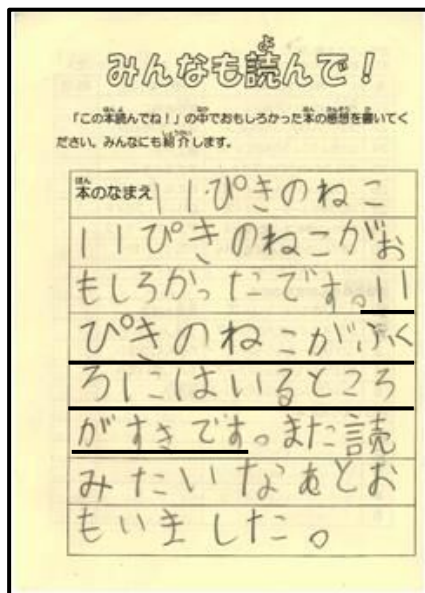 みんなも読んで!
「この本読んでね!」の中でおもしろかった本の感想を書いてく
ださい。みんなにも紹介します。
本のなまえ 11ぴきのねこ
11ぴきのねこがお
もしろかったです。11
ぴきのねこがふく
ろにはいるところ
がすきです。また読
みたいなぁとお
もいました。